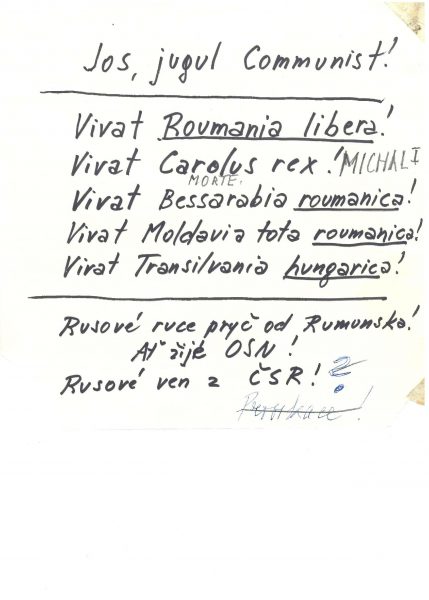 Jos, jugul Communist!
Vivat Roumania libera!
Vivat Carolus rex! MICHAL I
MORTE.
Vivat Bessarabia roumanica!
Vivat Moldavia tota roumanica!
Vivat Transilvania hungarica!
Rusové ruce pryč od Rumunska!
Ať žije OSN!
Rusové ven z ČSR! ?
Provokace!